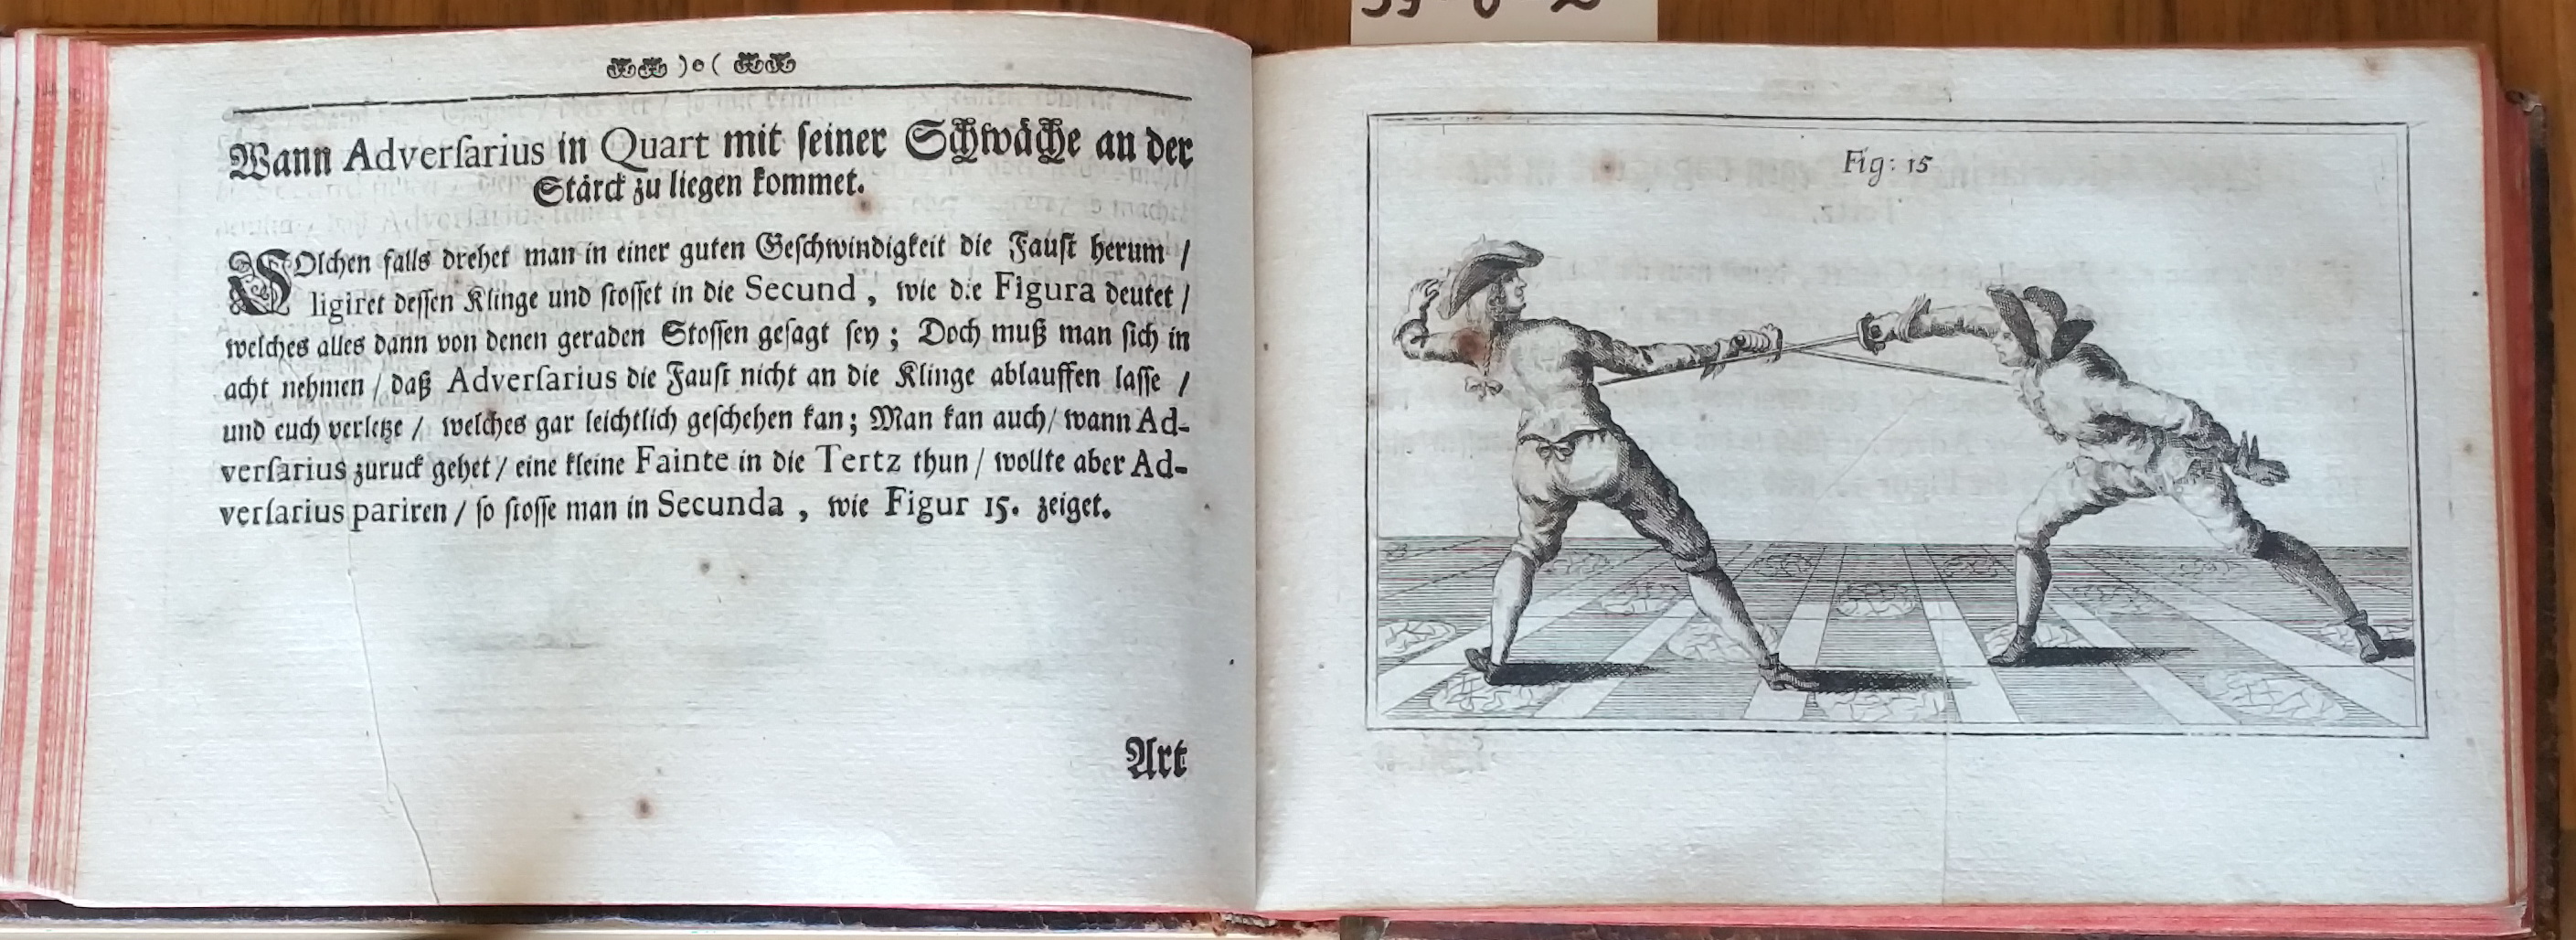 )o(
Wann Adverſarius in Quart mit ſeiner Schwäche an der
Stärck zu liegen kommet.
SOlchen falls drehet man in einer guten Geſchwindigkeit die Fauſt herum /
ligiret deſſen Klinge und ſtoſſet in die Secund, wie die Figura deutet /
welches alles dann von denen geraden Stoſſen geſagt ſey; Doch muß man ſich in
acht nehmen / daß Adverſarius die Fauſt nicht an die Klinge ablauffen laſſe /
und euch verletze / welches gar leichtlich geſchehen kan; Man kan auch / wann Ad-
verſarius zuruck gehet / eine kleine Fainte in die Tertz thun / wollte aber Ad-
verſarius pariren / ſo ſtoſſe man in Secunda, wie Figur 15. zeiget.
Art
Fig: 15